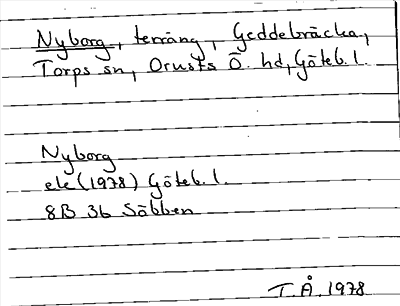 Nyborg, terräng, Geddebräcka,
Torps sn, Orusts Ö. hd, Göteb. l.
Nyborg
ele (1978) Göteb. l.
8B 3b Säbben
T. Å. 1978